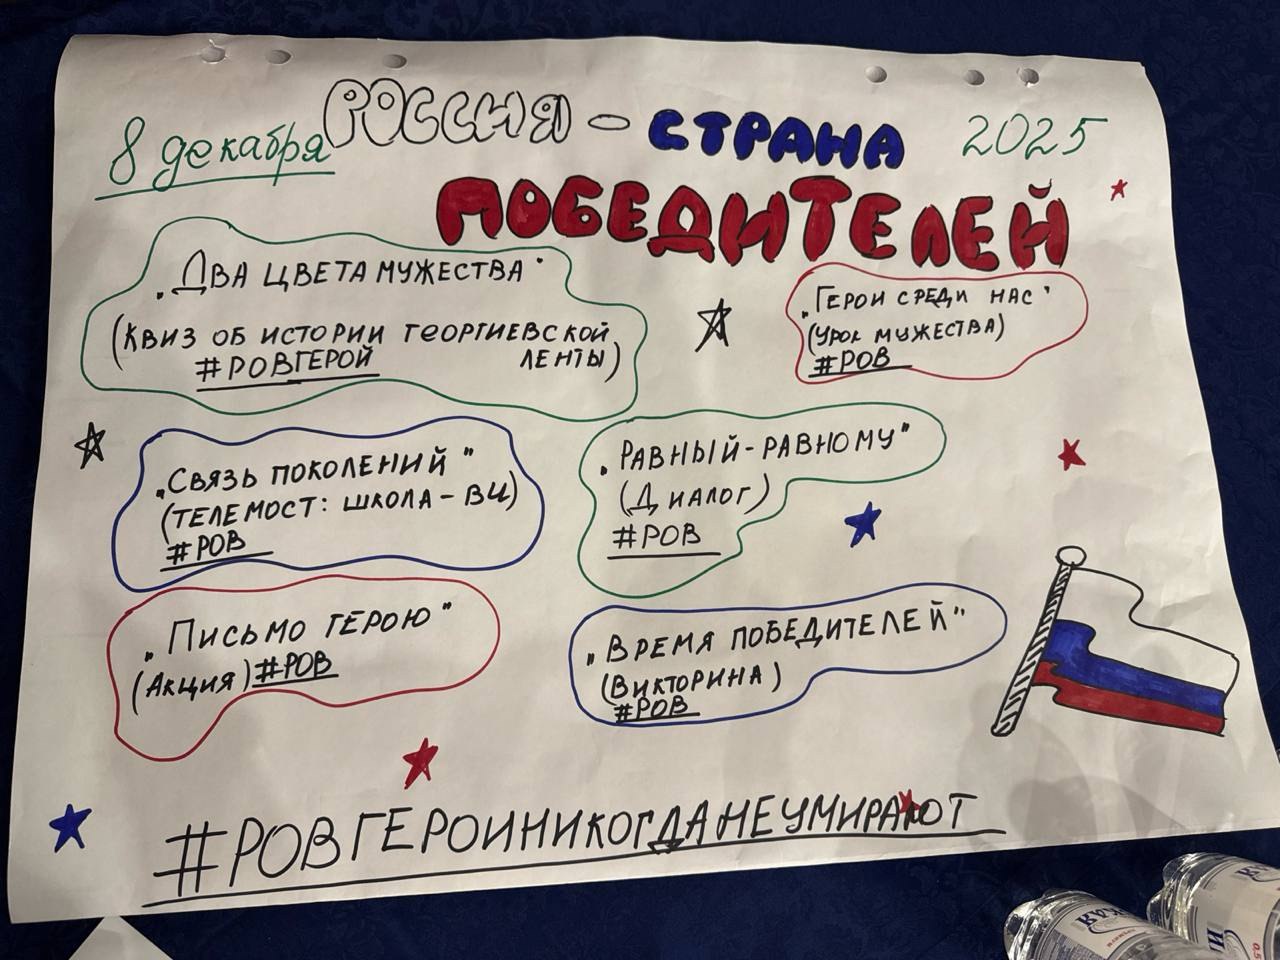 8 декабря
РОССИЯ - СТРАНА
2025
ПОБЕДИТЕЛЕЙ
„ДВА ЦВЕТА МУЖЕСТВА"
(КВИЗ ОБ ИСТОРИИ ГЕОРГИЕВСКОЙ
ЛЕНТЫ)
#РОВГЕРОЙ
„ГЕРОИ СРЕДИ НАС"
(УРОК МУЖЕСТВА)
#РОВ
„СВЯЗЬ ПОКОЛЕНИЙ"
(ТЕЛЕМОСТ: ШКОЛА-ВЦ)
#РОВ
„РАВНЫЙ-РАВНОМУ"
(ДИАЛОГ)
#РОВ
„ПИСЬМО ГЕРОЮ"
(АКЦИЯ) #РОВ
„ВРЕМЯ ПОБЕДИТЕЛЕЙ"
(ВИКТОРИНА)
#РОВ
#РОВГЕРОИНИКОГДАНЕУМИРАЮТ